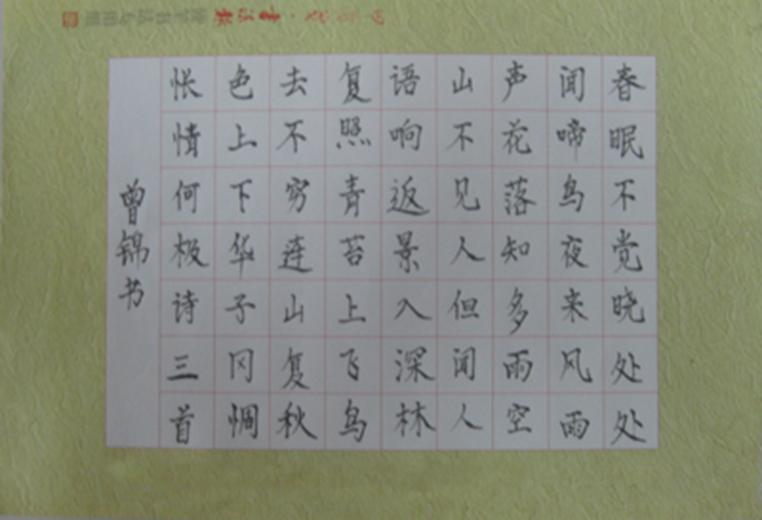 春眠不觉晓处处
闻啼鸟夜来风雨
声花落知多雨空
山不见人但闻人
语响返景入深林
复照青苔上飞鸟
去不穷连山复秋
色上下华子冈惆
怅情何极诗三首
曾锦书